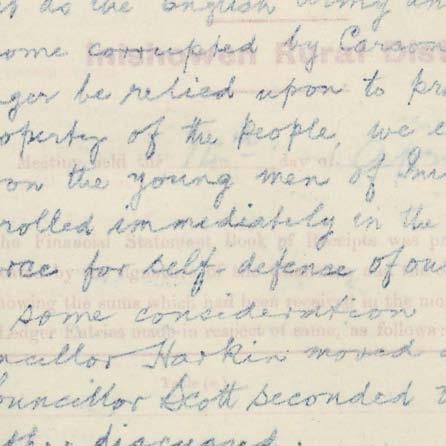 as the English Army an
ome corrupted by Carson
Inishowen Rural Dist
ger be relied upon to pr
operty of the people, we
Meeting held the day of
on the young men of Inis
rolled immediately in the
he Financial Statement Book of Receipts was pr
orce for self-defense of our
howing the sums which had been received in the mo
some consideration
Ledger Entries made in respect of same, as follows:
ncillor Harkin moved
ouncillor Scott seconded
discussed.